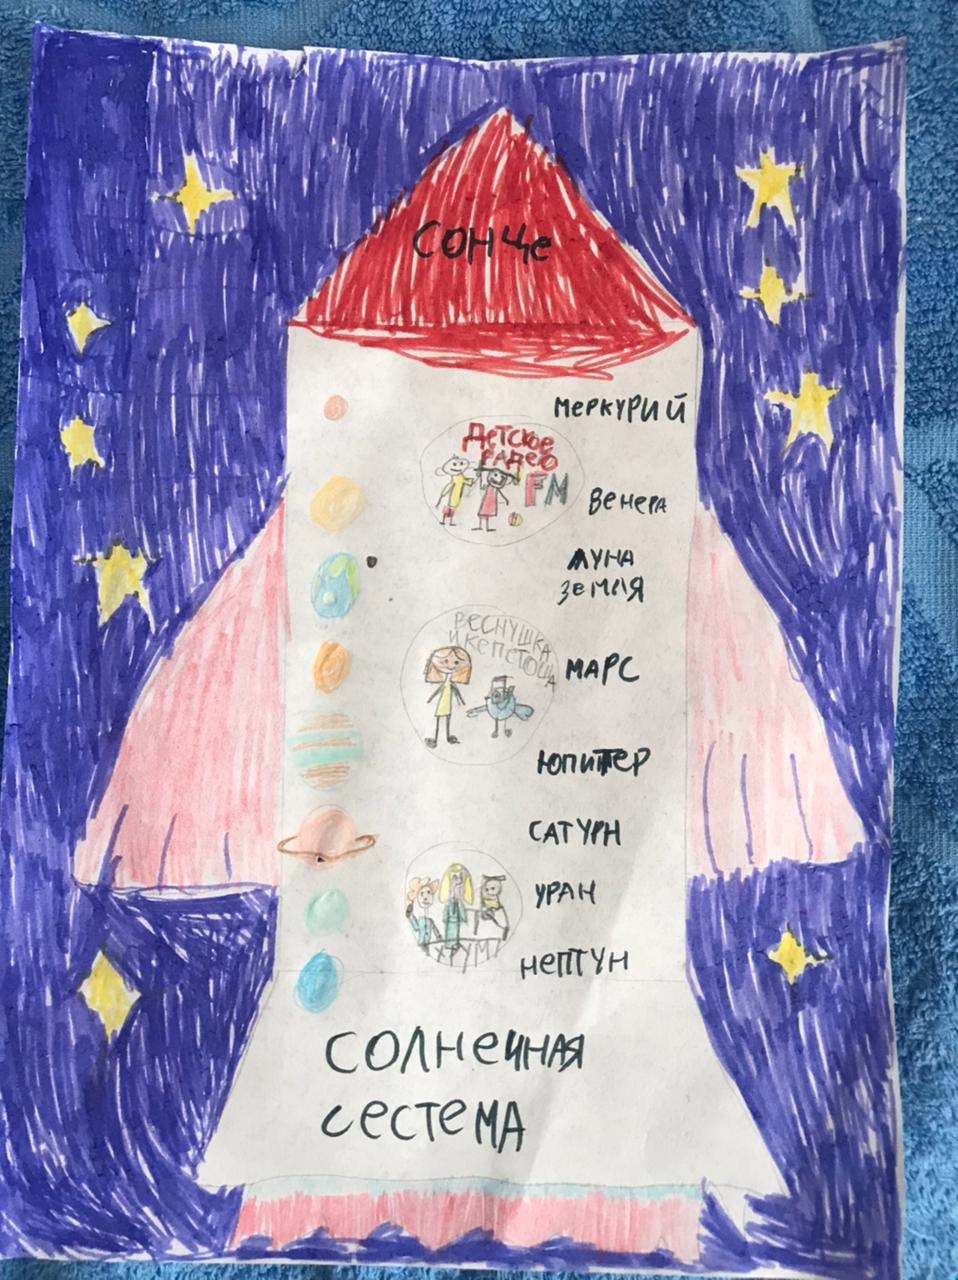 СОНЦе
МЕРКУРИЙ
ДеТСКОЕ
РАДЕО
FM
ВеНеРА
ЛУНА
ЗЕМЛЯ
ВЕСНУШКА
И КЕПЕТОША
МАРС
ЮПИТЕР
САТУРН
УРАН
ХРУМ
НЕПТУН
СОЛНеЧНАЯ
СЕСТЕМА